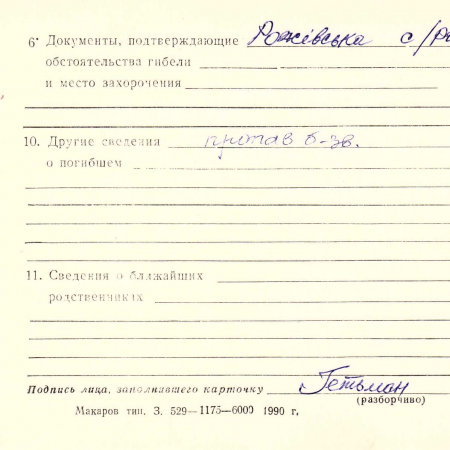 6• Документы, подтверждающие Рожівська с/р
обстоятельства гибели
и место захоронения
10. Другие сведения пропав б-зв.
о погибшем
11. Сведения о ближайших
родственниках
Подпись лица, заполнившего карточку Гетьман
(разборчиво)
Макаров тип. З. 529—1175—6000 1990 г.